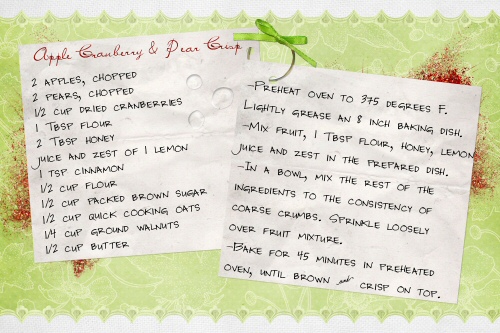 Apple Cranberry & Pear Crisp
2 apples, chopped
2 pears, chopped
1/2 cup dried cranberries
1 Tbsp flour
2 Tbsp honey
juice and zest of 1 lemon
1 tsp cinnamon
1/2 cup flour
1/2 cup packed brown sugar
1/2 cup quick cooking oats
1/4 cup ground walnuts
1/2 cup butter
-Preheat oven to 375 degrees F.
Lightly grease an 8 inch baking dish.
-Mix fruit, 1 Tbsp flour, honey, lemon
juice and zest in the prepared dish.
-In a bowl, mix the rest of the
ingredients to the consistency of
coarse crumbs. Sprinkle loosely
over fruit mixture.
-Bake for 45 minutes in preheated
oven, until brown and crisp on top.